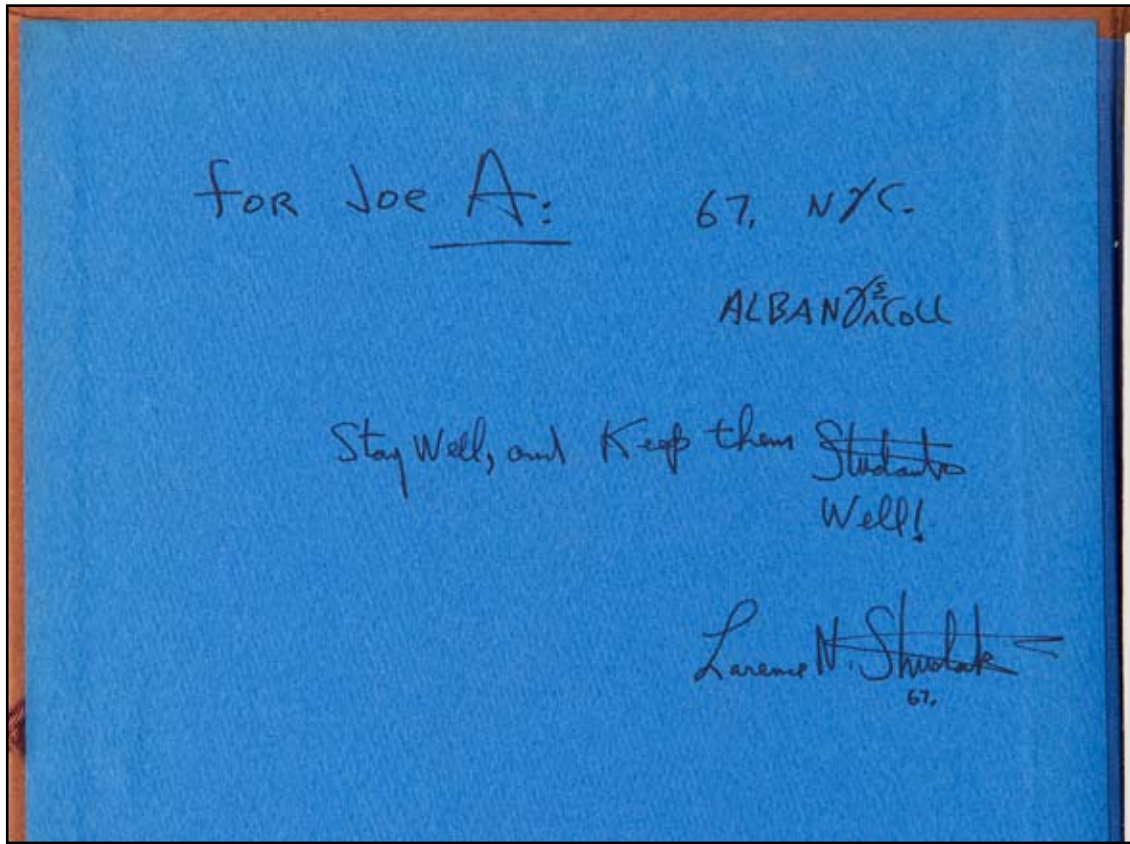 FOR Joe A: 67, NYC.
ALBANY S COLL
Stay Well, and Keep them Students
Well!
Larence N. Shustak
67,